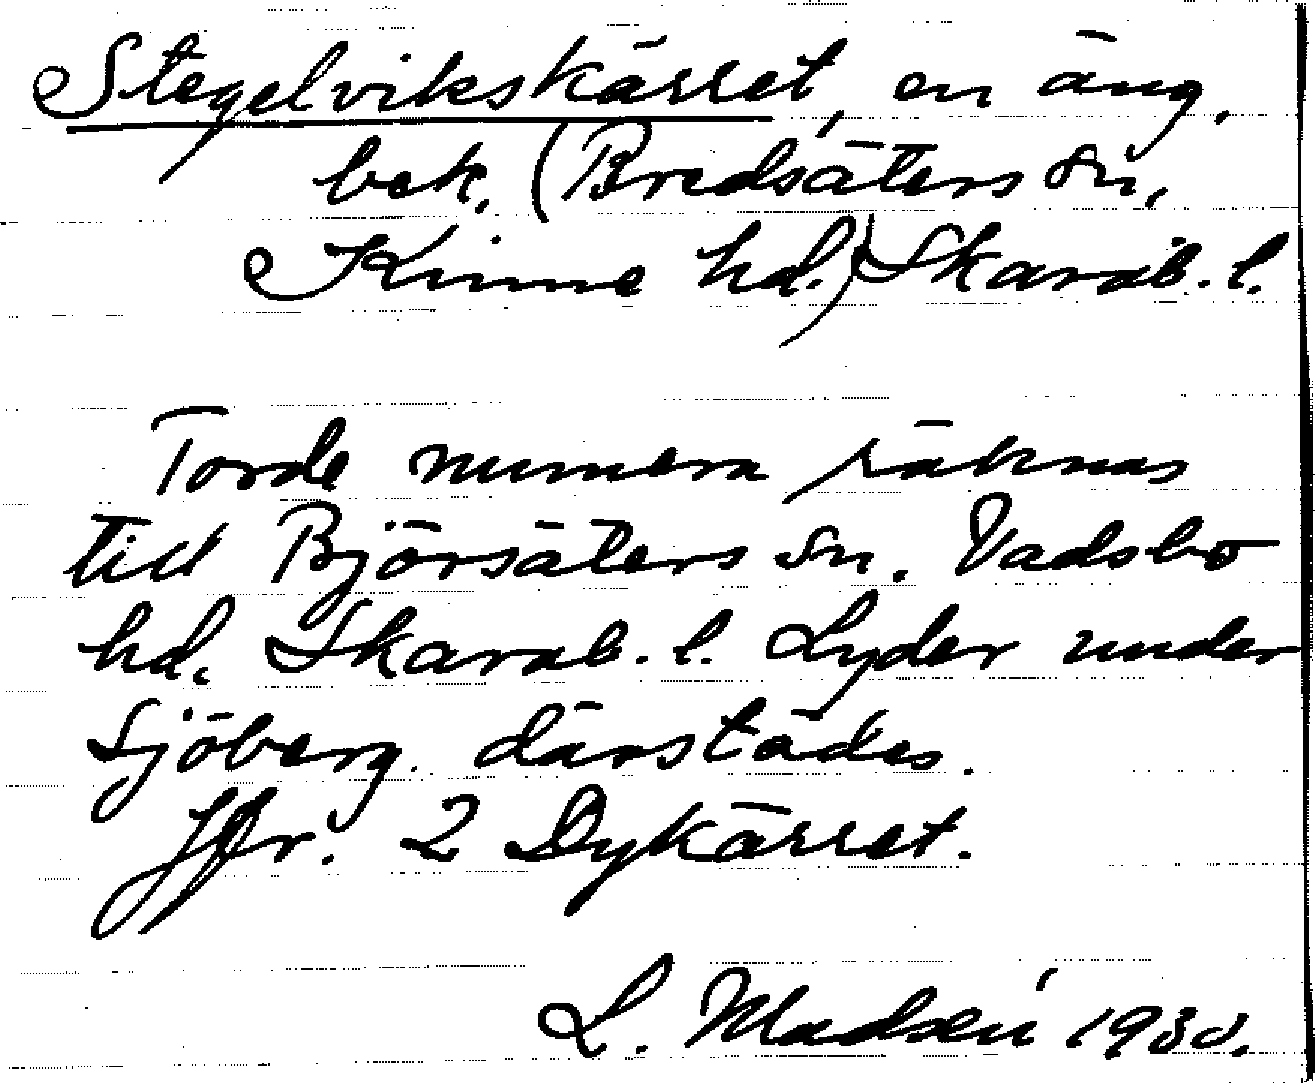 Stegelvikskärret, en äng,
bek. (Bredsäters sn,
Kinne hd.) Skarab. l.
Torde numera räknas
till Björsäters sn. Vadsbo
hd. Skarab. l. Lyder under
Sjöberg därstädes.
Jfr. 2 Dykärret.
L. Madsén 1930.